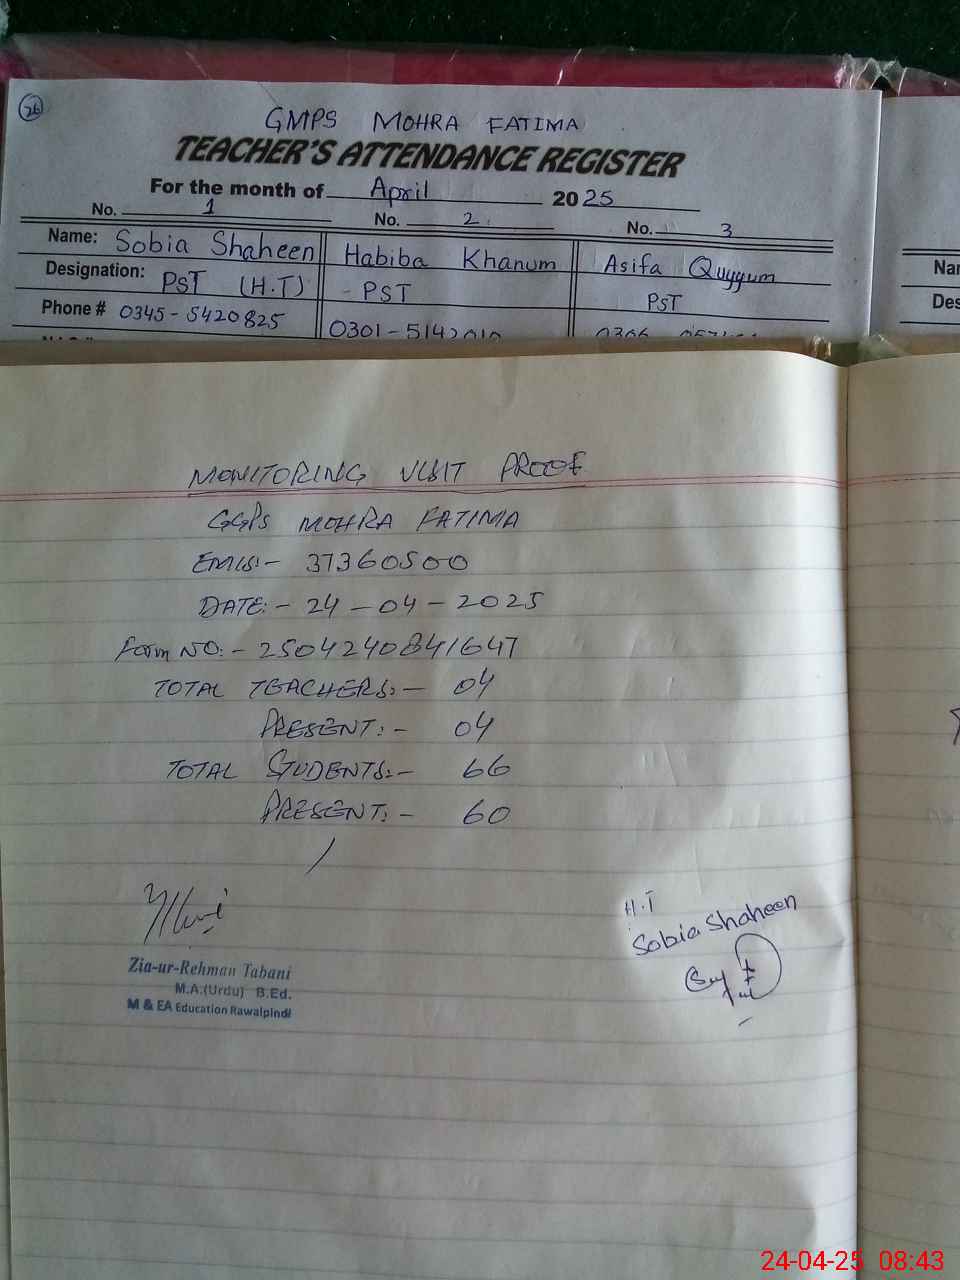 26
GMPS MOHRA FATIMA
TEACHER'S ATTENDANCE REGISTER
For the month of April 2025
No. 1 No. 2 No. 3
Name: Sobia Shaheen Habiba Khanum Asifa Quyyum
Designation: PST (H.T) PST PST
Phone # 0345-5420825 0301-5142010
MONITORING VISIT PROOF
GGPS MOHRA FATIMA
EMIS:- 37360500
DATE:- 24-04-2025
Form NO:- 2504240841647
TOTAL TEACHERS:- 04
PRESENT:- 04
TOTAL STUDENTS:- 66
PRESENT:- 60
H.T
Sobia Shaheen
Zia-ur-Rehman Tabani
M.A.(Urdu) B.Ed.
M & EA Education Rawalpindi
24-04-25 08:43